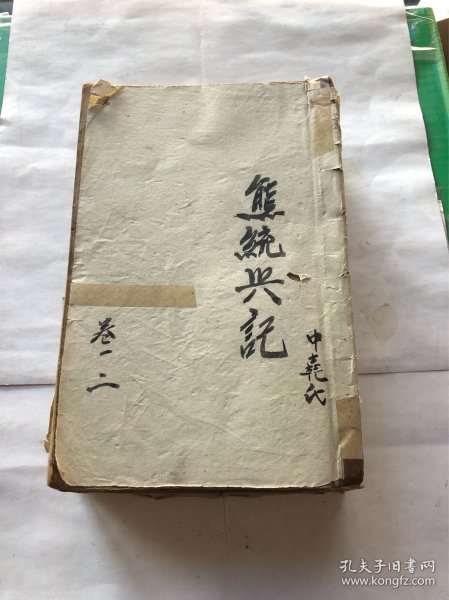 熊統兴記
申堯氏
卷一二
孔夫子旧书网
www.kongfz.com